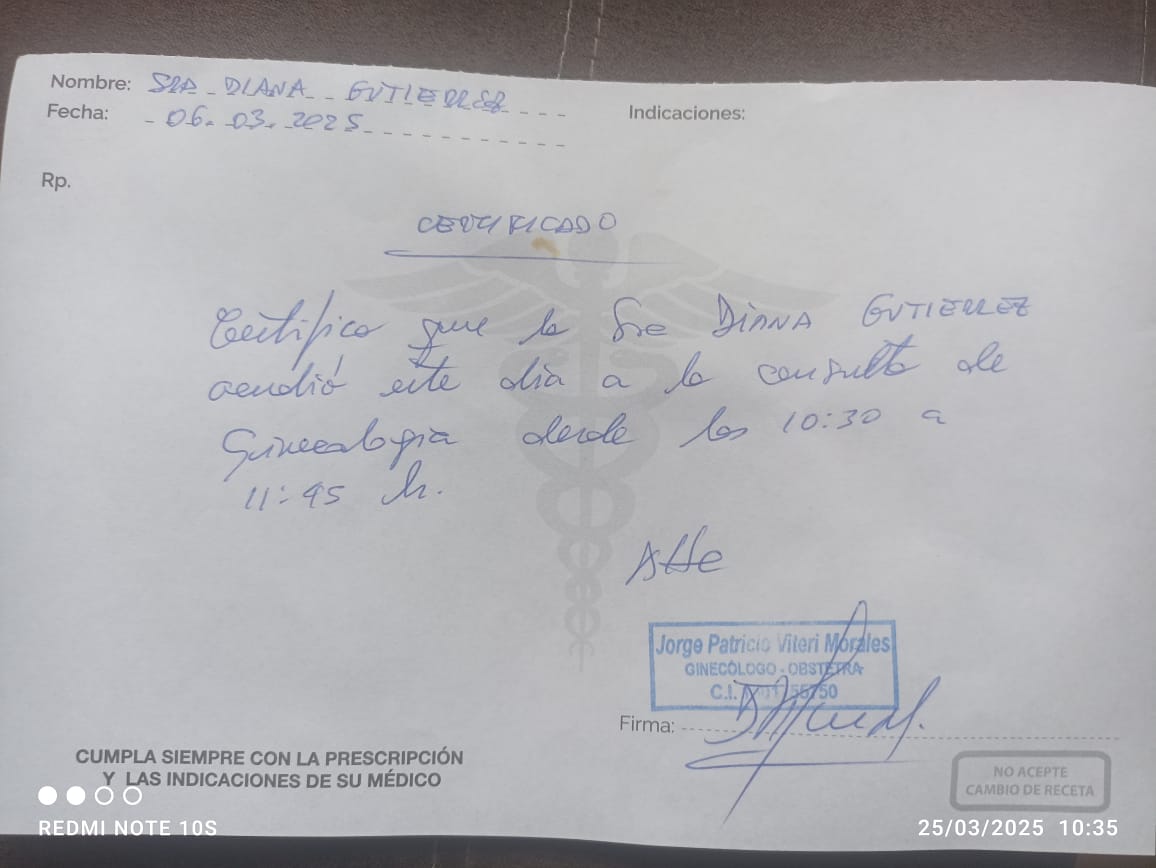 Nombre: SRA DIANA GUTIERREZ
Fecha: 06.03.2025
Indicaciones:
Rp.
CERTIFICADO
Certifico que la Sra DIANA GUTIERREZ
acudió este día a la consulta de
Ginecología desde las 10:30 a
11:45 h.
Atte
Jorge Patricio Viteri Morales
GINECÓLOGO - OBSTETRA
C.I.
Firma:
CUMPLA SIEMPRE CON LA PRESCRIPCIÓN
Y LAS INDICACIONES DE SU MÉDICO
NO ACEPTE
CAMBIO DE RECETA
REDMI NOTE 10S
25/03/2025 10:35